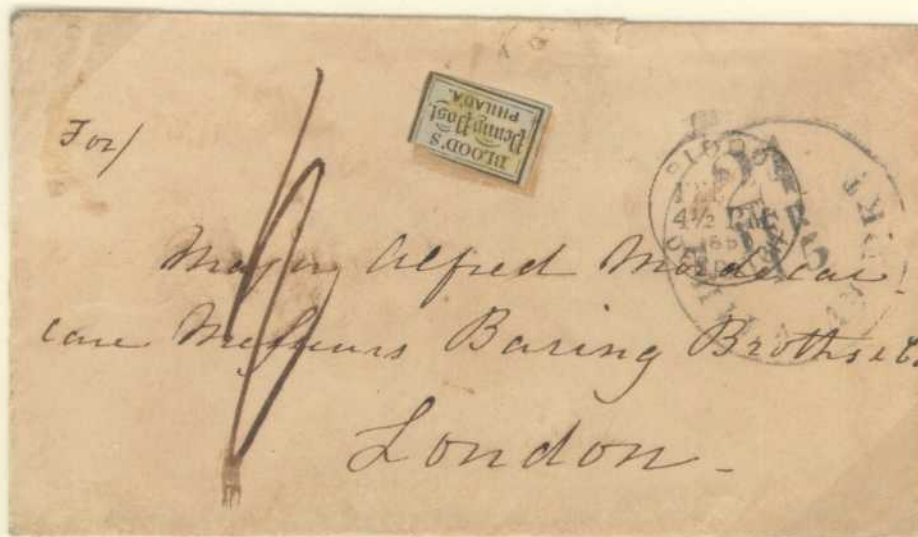 For/
BLOOD'S
Penny Post.
PHILAD'A.
2
4½ PM
Major Alfred Mordecai
care Messieurs Baring Broths & Co
London.